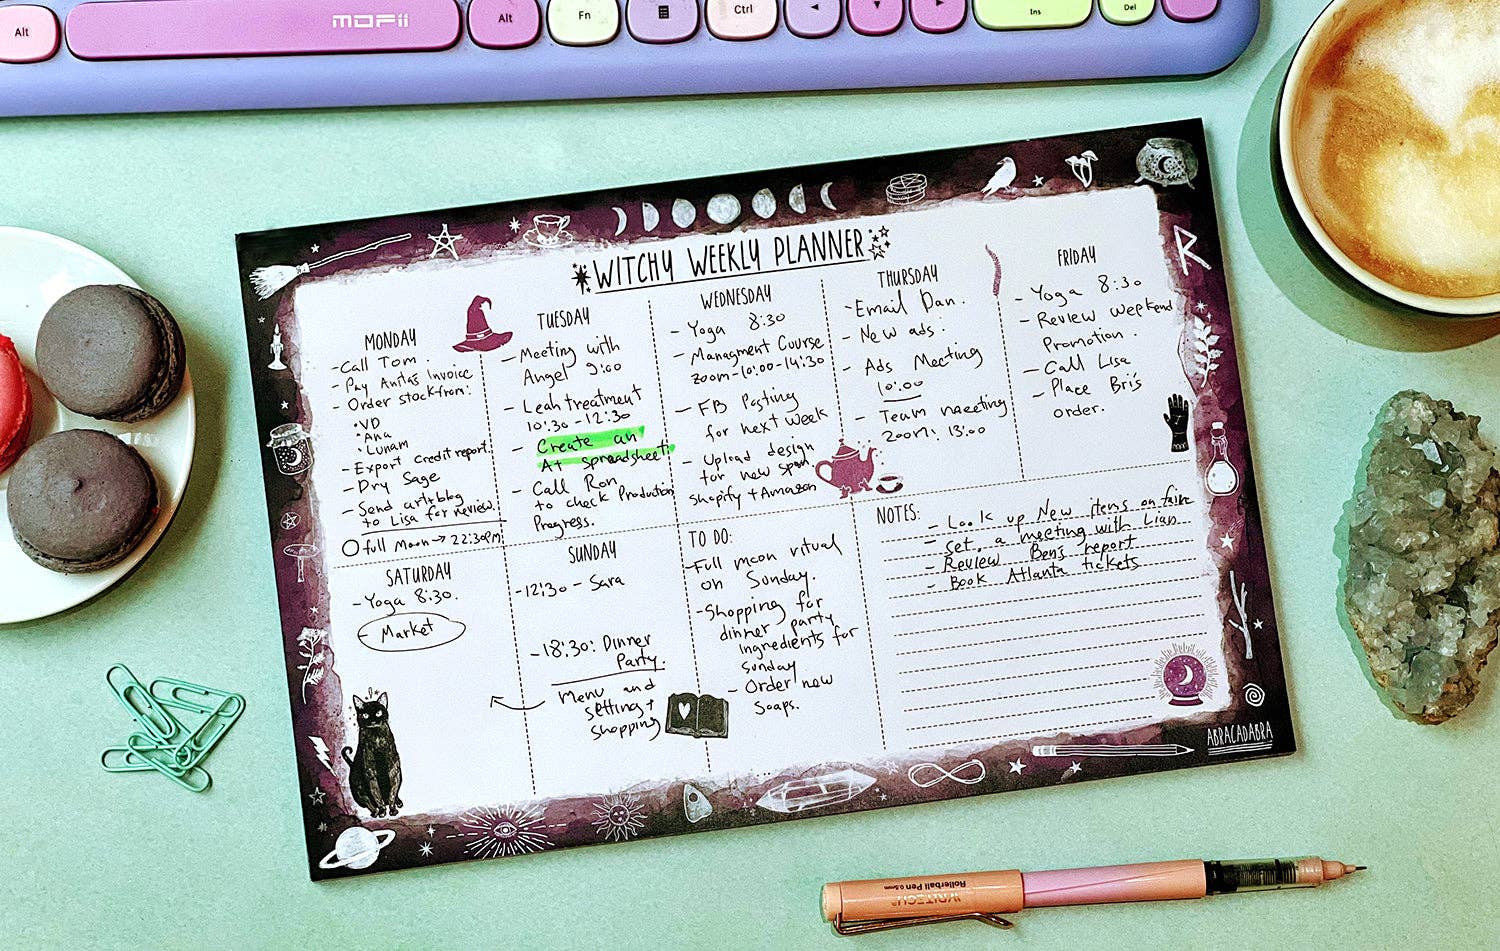 Alt
MOFii
Alt
Fn
Ctrl
Ins
Del
WITCHY WEEKLY PLANNER
MONDAY
- Call Tom.
- Pay Anita's Invoice
- Order stock from:
• VD
• Ana
• Lunam
- Export Credit report.
- Dry Sage
- Send art + blog
to Lisa for review.
full Moon → 22:30pm
TUESDAY
- Meeting with
Angel 9:00
- Leah treatment
10:30 - 12:30
- Create an
A+ spreadsheet.
- Call Ron
to check Production
Progress.
WEDNESDAY
- Yoga 8:30
- Managment Course
zoom - 10:00 - 14:30
- FB Posting
for next week
- Upload design
for new
Shopify + Amazon
THURSDAY
- Email Dan.
- New ads.
- Ads Meeting
10:00
- Team meeting
zoom: 13:00
FRIDAY
- Yoga 8:30
- Review weekend
Promotion.
- Call Lisa
- Place Bri's
order.
SATURDAY
- Yoga 8:30.
- Market
SUNDAY
- 12:30 - Sara
- 18:30: Dinner
Party.
Menu and
setting +
shopping
TO DO:
- Full moon ritual
on Sunday.
- Shopping for
dinner party
ingredients for
Sunday
- Order new
Soaps.
NOTES:
- Look up New items on faire
- set. a meeting with Lian
- Review Ben's report
- Book Atlanta tickets
ABRACADABRA
WRITECH
Rollerball Pen 0.5mm